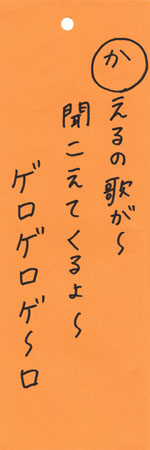 かえるの歌が〜
聞こえてくるよ〜
ゲロゲロゲ〜ロ